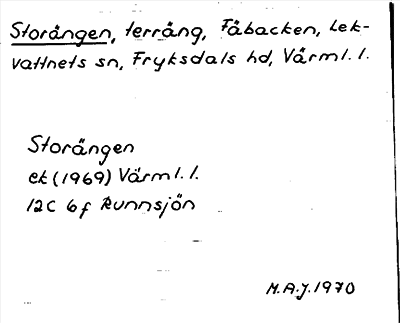 Storängen, terräng, Fåbacken, Lek-
vattnets sn, Fryksdals hd, Värml. l.
Storängen
ek (1969) Värml. l.
12C 6f Runnsjön
M.A.J. 1970